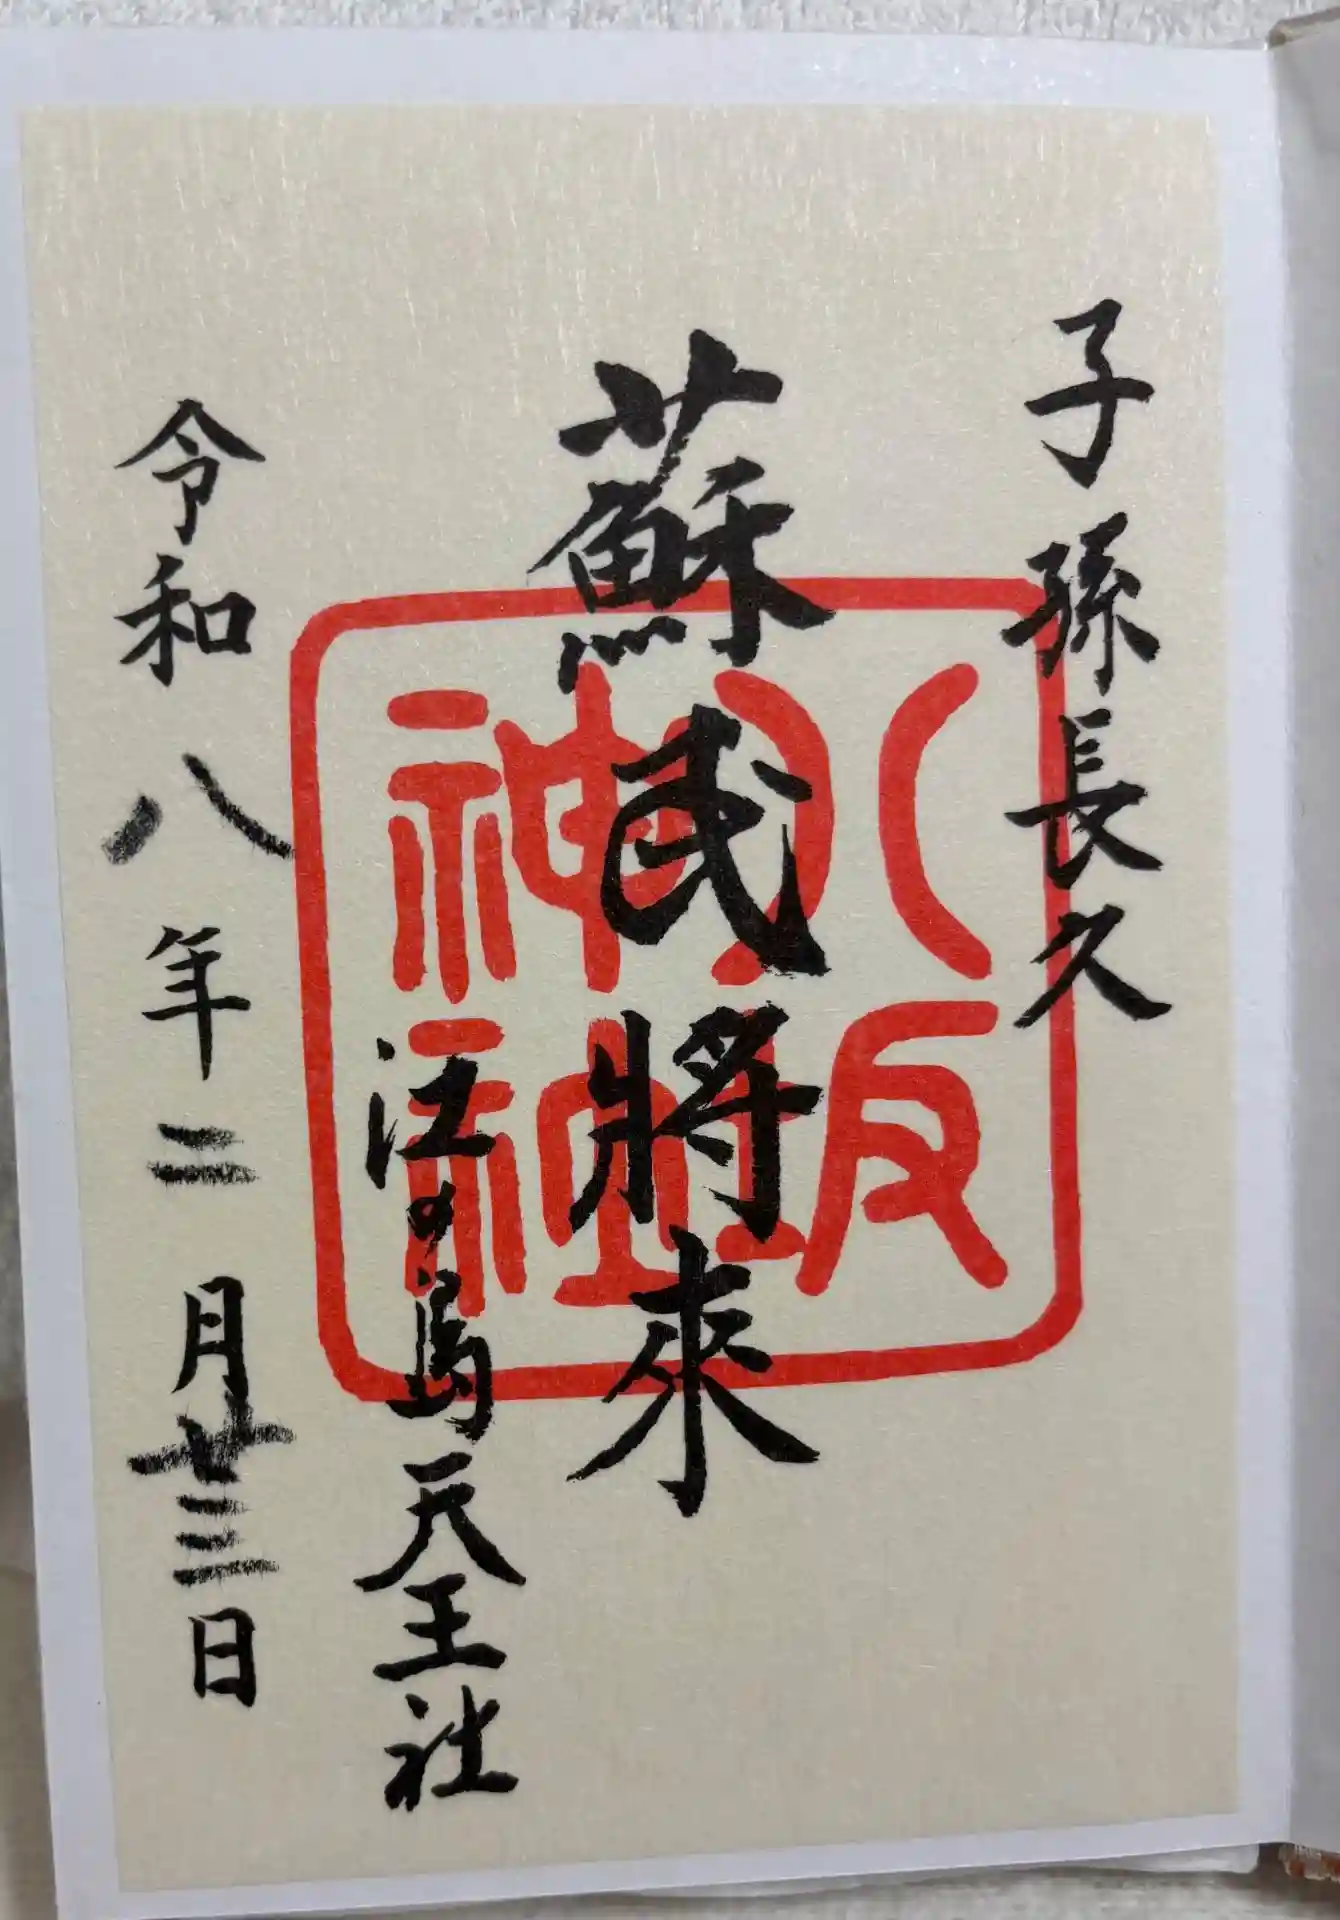 子孫長久
蘇民將來
八坂
神社
江の島天王社
令和八年二月廿三日